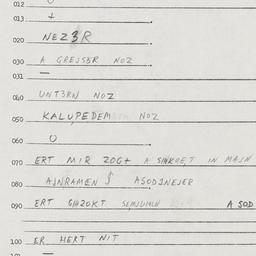 012
013 +
020 NEZ3R
030 A GRESS3R NOZ
031 —
040 UNT3RN NOZ
050 KALUPEDEM NOZ
060 O
070 ERT MIR ZOGT A SINKRET IN MAIN
080 AINRAMEN $ ASODINEJER
090 ERT A SOD
100 ER HERT NIT